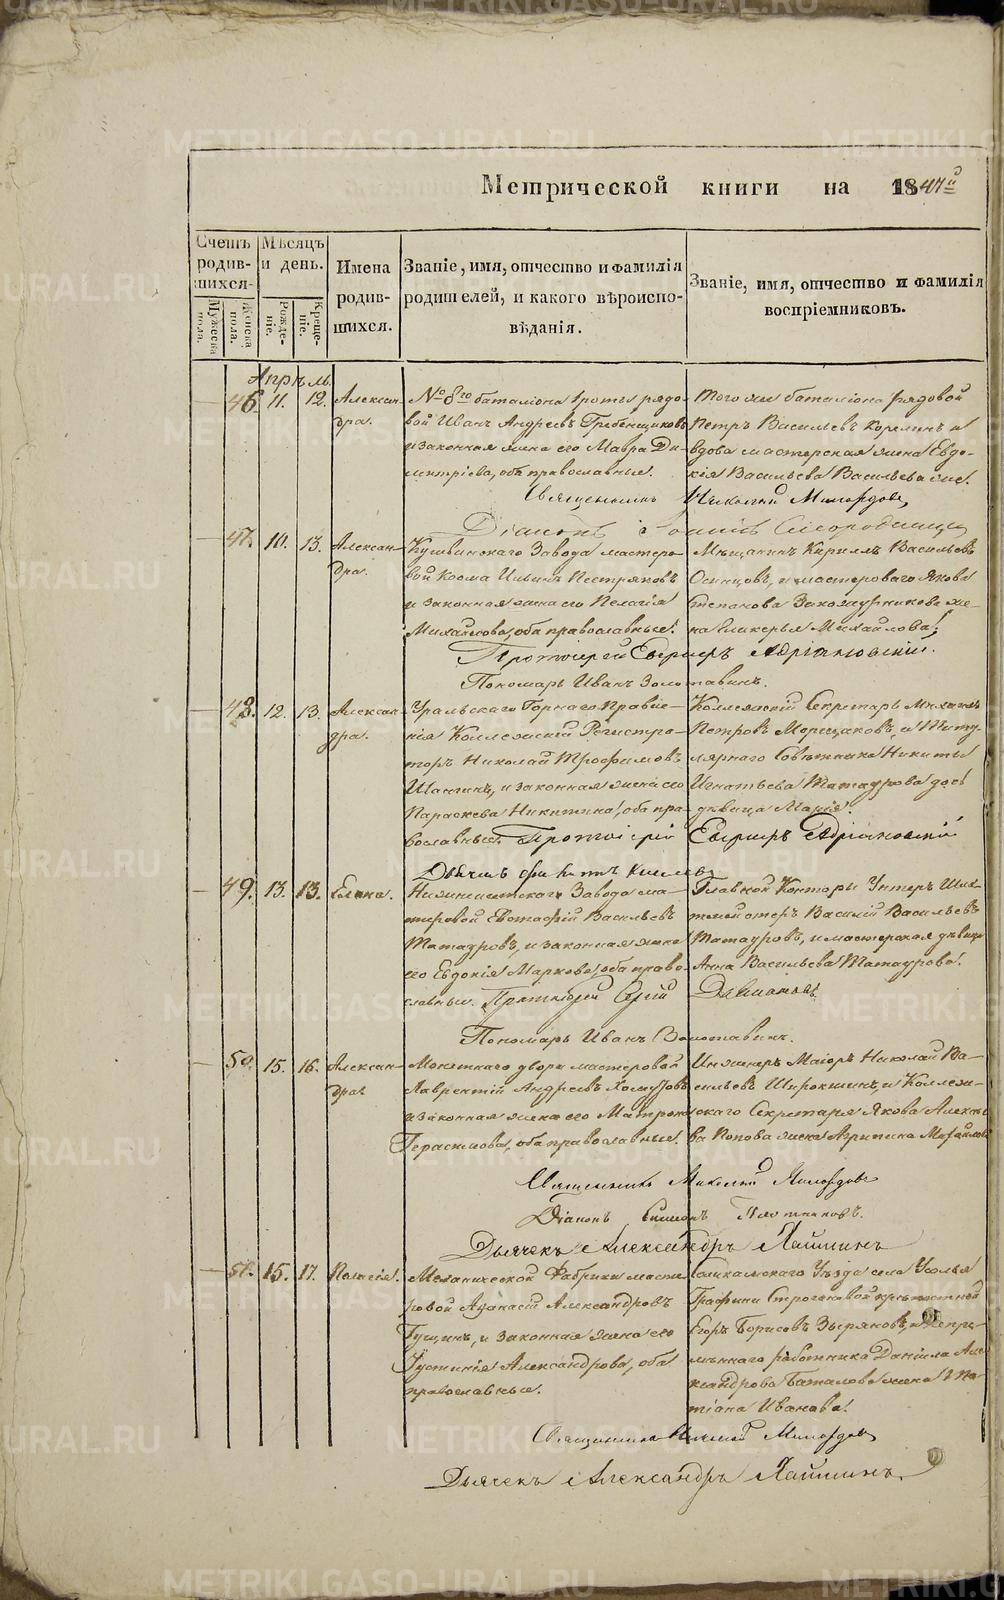 Метрической книги на 1847й
Счетъ родив-шихся.
Мѣсяцъ и день.
Имена родив-шихся.
Званіе, имя, отчество и фамилія родителей, и какого вѣроиспо-вѣданія.
Званіе, имя, отчество и фамилія воспріемниковъ.
Мужеска пола.
Женска пола.
Рожде-ніе.
Креще-ніе.
Апрѣль.
46. 11. 12. Алексан-дра.
№ 8го баталіона роты рядо-
вой Иванъ Андреевъ Гребенщиковъ
и законная жена его Мавра Ди-
митріева, оба православные.
Того же баталіона рядовой
Петръ Васильевъ Корелинъ и
вдова мастерская жена Евдо-
кія Васильева Васильева же.
Священникъ Николай Милордовъ
Діаконъ
47. 10. 13. Алексан-дра.
Кушвинскаго Завода мастеро-
вой Косма Ильинъ Пестряковъ
и законная жена его Пелагія
Михайлова, оба православные.
Мѣщанинъ Кириллъ Васильевъ
Осинцовъ, и мастероваго Якова
Степанова Закожурникова же-
на Гликерья Михайлова.
Протоіерей
Пономарь Иванъ Золотавинъ.
48. 12. 13. Алексан-дра.
Уральскаго Горнаго Правле-
нія Коллежскій Регистра-
торъ Николай Трофимовъ
Шангинъ, и законная жена его
Параскева Никитина, оба пра-
вославные.
Коллежскій Секретарь Михаилъ
Петровъ Мерщаковъ, и Титу-
лярнаго Совѣтника Никиты
Игнатьева Татаурова дочь
дѣвица Марія.
Протоіерей
49. 13. 13. Елена.
Нижнеисетскаго Завода ма-
стеровой Евстафій Васильевъ
Татауровъ, и законная жена
его Евдокія Маркова, оба право-
славные.
Главной Конторы Унтеръ Ших-
тмейстеръ Василій Васильевъ
Татауровъ, и мастерская дѣвица
Анна Васильева Татаурова.
Протоіерей
Пономарь Иванъ Золотавинъ.
50. 15. 16. Алексан-дра.
Монетнаго двора мастеровой
Лаврентій Андреевъ Хомутовъ
и законная жена его Матрона
Герасимова, оба православные.
Инженеръ Маіоръ Николай Ва-
сильевъ Широкшинъ, и Коллеж-
скаго Секретаря Якова Алексѣе-
ва Попова жена Агрипина Михайлова
Священникъ Николай Милордовъ
Діаконъ Симеонъ Плотниковъ.
Дьячекъ Александръ Ляпшинъ
51. 15. 17. Пелагія.
Механической Фабрики масте-
ровой Аѳанасій Александровъ
Гущинъ, и законная жена его
Іустинія Александрова, оба
православные.
Соликамскаго Уѣзда села Усолья
Графини Строгановой крѣпостной
Егоръ Борисовъ Зыряновъ, и непре-
мѣннаго работника Даніила Але-
ксандрова Баталова жена Та-
тіана Иванова.
Священникъ Николай Милордовъ
Дьячекъ Александръ Ляпшинъ.
METRIKI.GASO-URAL.RU